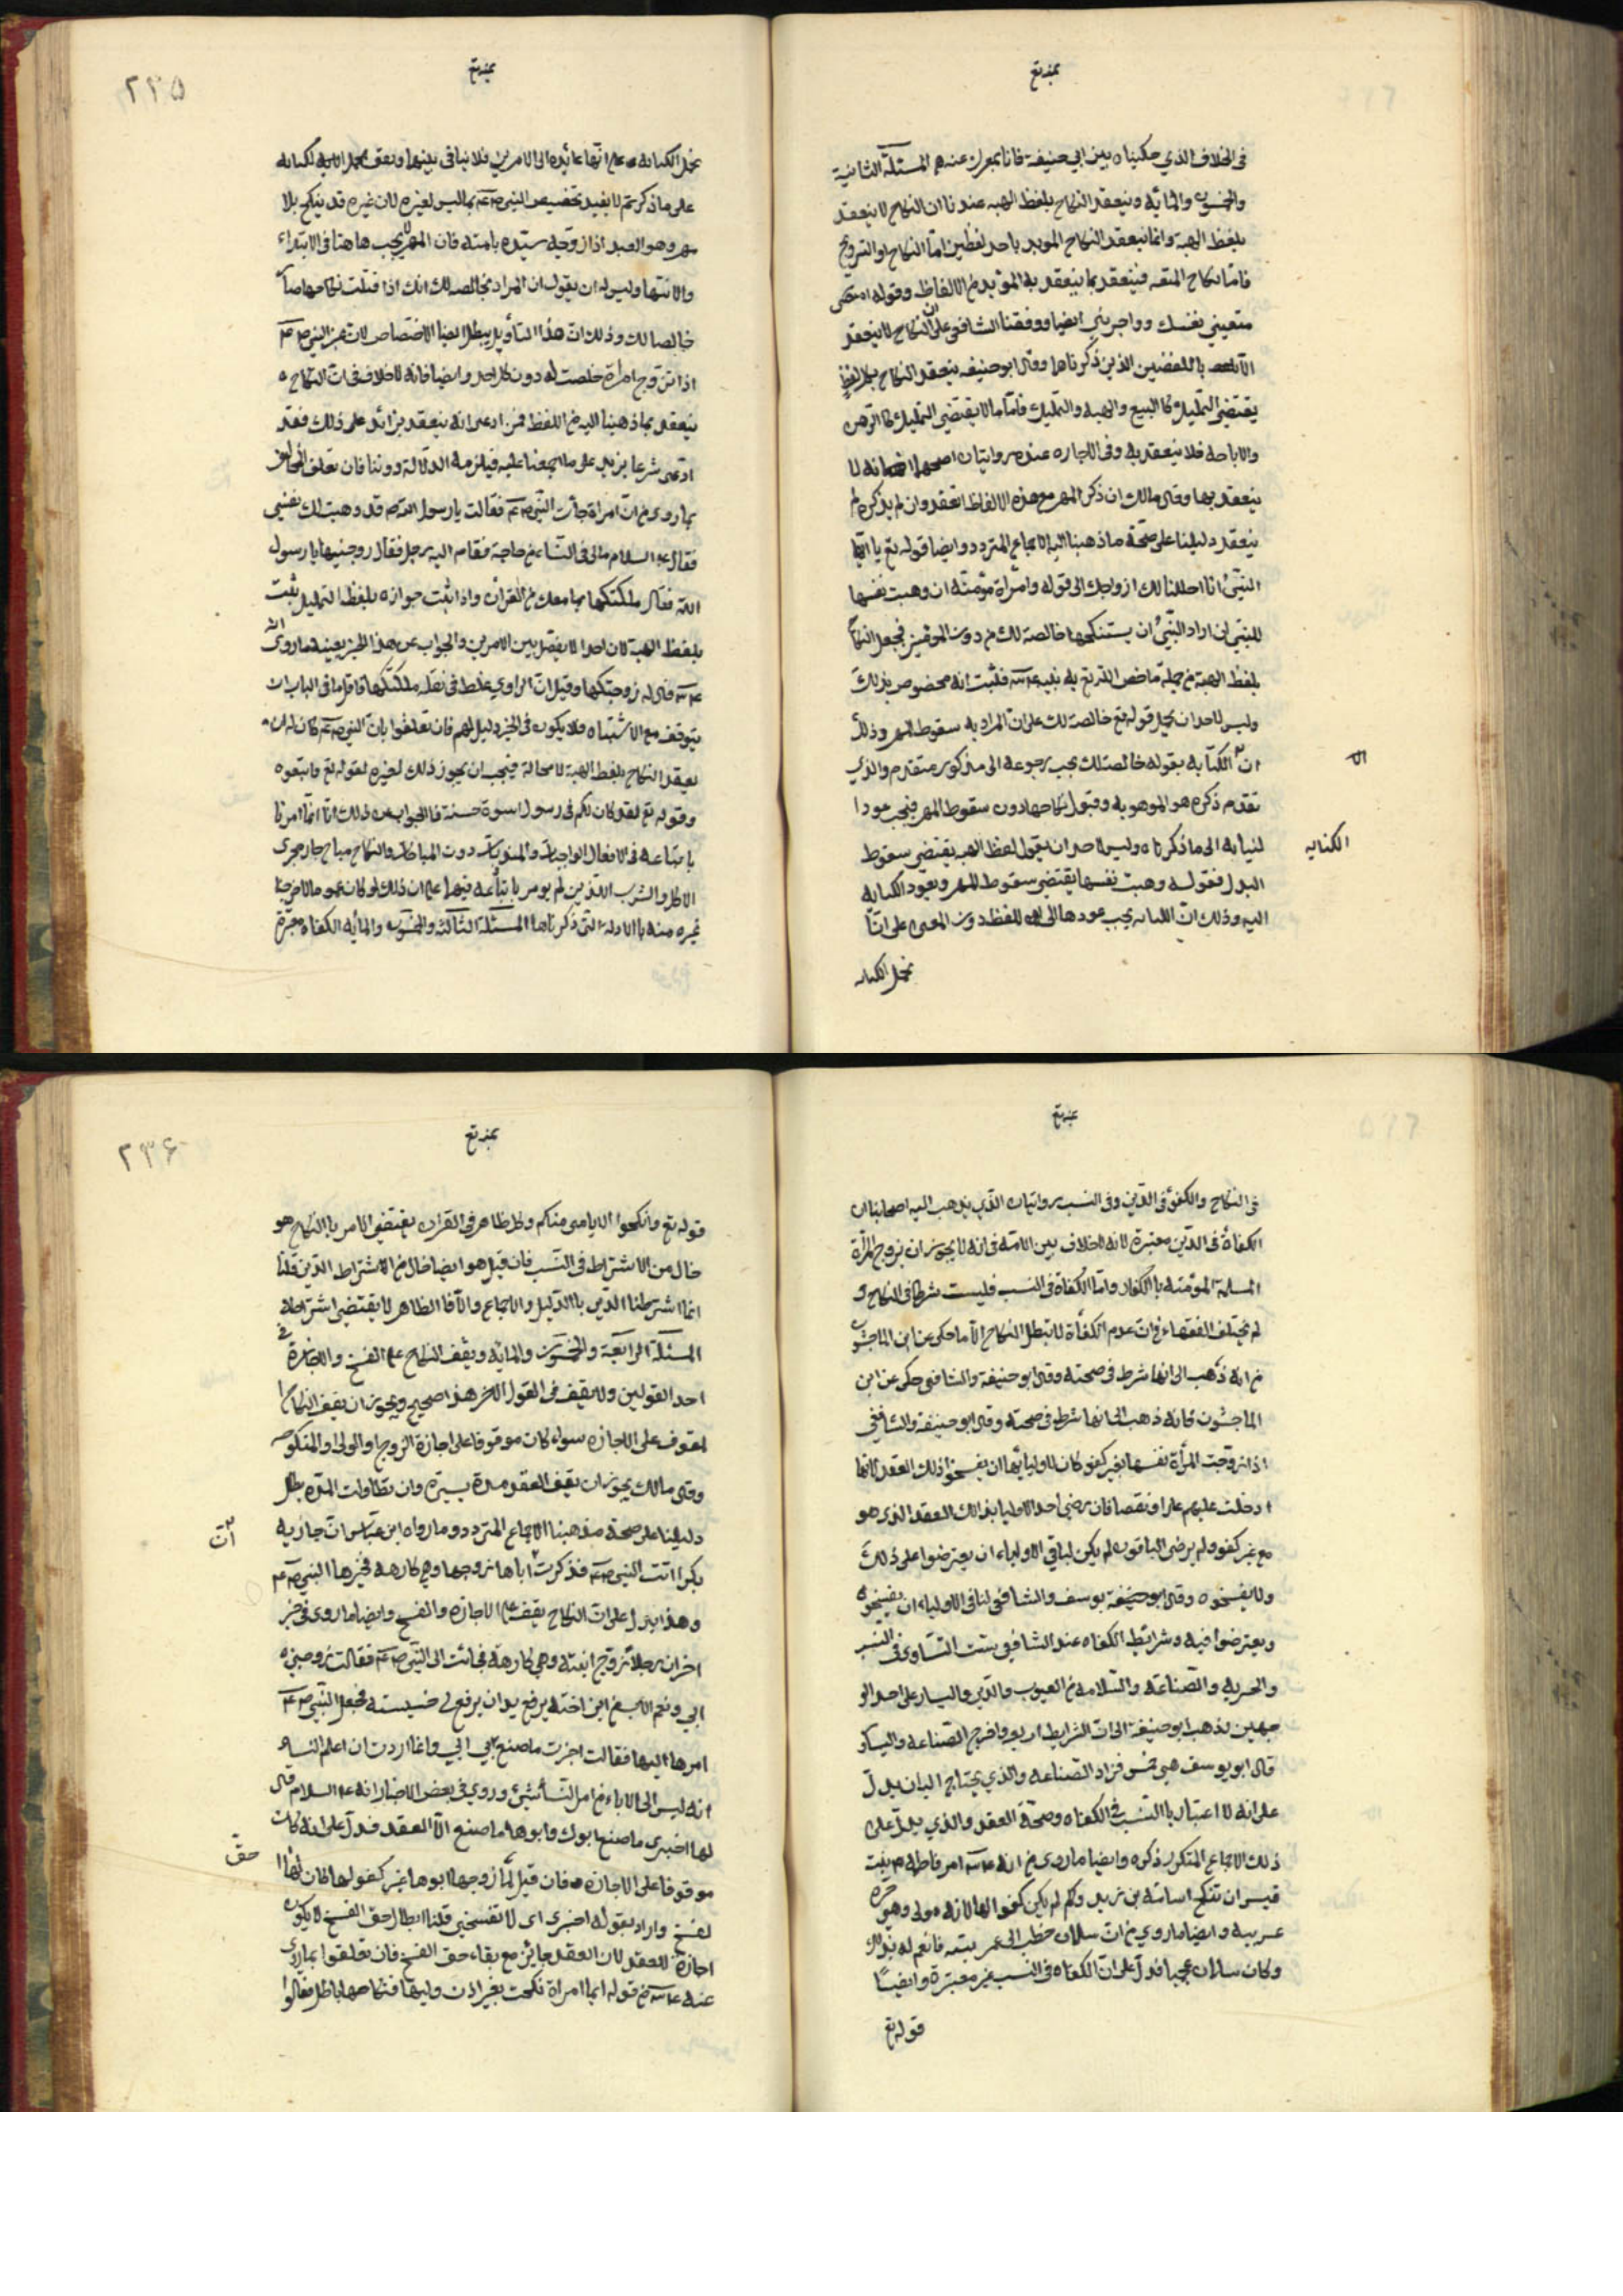 في الخلاف الذي حكيناه بين ابي حنيفة فانا بمعزل عنه المسئلة الثانية
والخمسون والمائه وينعقد النكاح بلفظ الهبه عندنا ان النكاح لا ينعقد
بلفظ الهبة وانما ينعقد النكاح الموبد باحد لفظين اما النكاح او التزويج
فاما نكاح المتعه فينعقد بما ينعقد به الموبد من الالفاظ وقوله
متعيني نفسك وواجريني ايضا ووفقنا الشافعي على ان النكاح لا ينعقد
الا باللفضين الذين ذكرناها وقال ابو حنيفه ينعقد النكاح بكل لفظ
يقتضي التمليك كالبيع والهبه والتمليك فاما ما لا يقتضي التمليك كالرهن
والاباحه فلا ينعقد به وفي الاجاره عنده روايتان اصحهما انه لا
ينعقد بها وقال مالك ان ذكر المهر مع هذه الالفاظ انعقد وان لم يذكره لم
ينعقد دليلنا على صحة ما ذهبنا اليه الاجماع المتردد وايضا قوله تع يا ايها
النبي انا احللنا لك ازواجك الى قوله وامرأة مؤمنة ان وهبت نفسها
للنبي ان اراد النبي ان يستنكحها خالصة لك من دون المؤمنين فجعل النكاح
بلفظ الهبة من جملة ما خص الله تع به نبيه فثبت انه مخصوص بذلك
وليس لاحد ان يحمل قوله تع خالصة لك على ان المراد به سقوط المهر وذلك
ان الكتابه بقوله خالصة لك يجب رجوعه الى مذكور متقدم والذي
تقدم ذكره هو الموهوبه وقبول نكاحها دون سقوط المهر فيجب عود
الى ما ذكرناه وليس لاحد ان يقول لفظ الهبه يقتضي سقوط
البدل فقوله وهبت نفسها يقتضي سقوط المهر ويعود الكنايه
اليه وذلك ان الكنايه يجب عودها الى اللفظ دون المعنى على انا
نحمل الكنايه
الكنايه
بمنه تع
٢٣٥
نحمل الكنايه على انها عائده الى الامرين فلا تنافي بينهما
على ما ذكرتم لا يفيد تخصيص النبي بما ليس لغيره لان غيره قد ينكح بلا
مهر وهو العبد اذا زوجه سيده بامته فان المهر لا يجب هاهنا في الابتداء
والانتها وليس له ان يقول ان المراد بخالصه لك انك اذا قبلت نكاحها صار
خالصا لك وذلك ان هذا التأويل يبطل ايضا الاختصاص لان غير النبي
اذا تزوج امراة خلصت له دون كل احد وايضا فانه لا خلاف في ان النكاح
ينعقد بما ذهبنا اليه من اللفظ فمن ادعى انه ينعقد بزائد على ذلك فقد
ادعى شرعا يزيد على ما اجمعنا عليه فيلزمه الدلالة دوننا فان تعلق المخالف
بما روي من ان امراة جاءت النبي فقالت يا رسول الله قد وهبت لك نفسي
فقال السلام مالي في النساء من حاجة فقام اليه رجل فقال زوجنيها يا رسول
الله فقال ملكتكها بما معك من القران واذا ثبت جوازه بلفظ التمليك ثبت
بلفظ الهبة لان احدا لا يفصل بين الامرين والجواب عن هذا الخبر بعينه ما روي
قال له زوجتكها وقيل ان الراوي غلط في نقله ملكتكها فاقل ما في الباب ان
يتوقف مع الاشتباه ولا يكون في الخبر دليل لهم فان تعلقوا بان النبي كان له ان
يعقد النكاح بلفظ الهبة لا محالة فيجب ان يجوز ذلك لغيره لقوله تع واتبعوه
وقوله تع لقد كان لكم في رسول اسوة حسنة فالجواب عن ذلك انا انما امرنا
باتباعه في الافعال الواجبات والمندوبات دون المباحات والنكاح مباح جار مجرى
الاكل والشرب اللذين لم يومر باتباعه فيهما على ان ذلك لو كان عموما لاخرجنا
غيره منه بالادلة التي ذكرناها المسئلة الثالثة والخمسون والمائه الكفاه معتبرة
بمنه تع
في النكاح والكفؤ في الدين وفي النسب روايتان الذي يذهب اليه اصحابنا ان
الكفاة في الدين معتبرة لانه لا خلاف بين الامة في انه لا يجوز ان يزوج المرأة
المسلمة المؤمنه بالكفار واما الكفاة في النسب فليست شرطا في النكاح و
لم يختلف الفقهاء في ان عدم الكفأة لا تبطل النكاح الا ما حكي عن ابن الماجشون
من انه ذهب الى انها شرط في صحته وقال ابو حنيفة والشافعي حكي عن ابن
الماجشون فانه ذهب الى انها شرط في صحته وقال ابو حنيفة والشافعي
اذا زوجت المرأة نفسها بغير كفو كان لاوليائها ان يفسخوا ذلك العقد لانها
ادخلت عليهم عارا ونقصا فان رضي احد الاوليا بذالك العقد الذي هو
مع غير كفو ولم يرضى الباقون لم يكن لباقي الاولياء ان يعترضوا على ذلك
ولا يفسخوه وقال ابو يوسف والشافعي لنا في الاولياء ان يفسخوه
ويعترضوا فيه وشرائط الكفاه عند الشافعي ست التساوي في النسب
والحريه والصناعة والسلامه من العيوب والدين واليسار على احد الو
جهين وذهب ابو حنيفة الى ان الشرايط اربع واخرج الصناعه واليسار
قال ابو يوسف هي خمس فزاد الصناعه والذي يحتاج البيان يدل
على انه لا اعتبار بالنسب في الكفاه وصحة العقد والذي يدل على
ذلك الاجماع المتكرر ذكره وايضا ما روي من انه امر فاطمه بنت
قيس ان تنكح اسامة بن زيد ولم يكن كفوا لها لانه مولى وهي حرة
عربيه وايضا ما روي من ان سلمان خطب الى عمر فانعم له بذلك
وكان سلمان عجميا فدل على ان الكفاه في النسب غير معتبرة وايضا
قوله تع
بمنه تع
٢٣٦
قوله تع وانكحوا الايامى منكم وكل ظاهر في القران يقتضي الامر بالنكاح هو
خال من الاشتراط في النسب فان قيل هو ايضا خال من الاشتراط الدين قلنا
انما اشترطنا الدين بالدليل والاجماع والا فالظاهر لا يقتضي اشتراطه
المسئلة الرابعة والخمسون والمائه ويقف النكاح على الفسخ والاجازة في
احد القولين ولا يقف في القول الاخر هذا صحيح ويجوز ان يقف النكاح
على الاجازه سواء كان موقوفا على اجازة الزوج او الولي او المنكوحه
وقال مالك يجوز ان يقف العقد مدة يسيرة وان تطاولت المدة بطل
دليلنا على صحة مذهبنا الاجماع المتردد وما رواه ابن عباس ان جارية
بكرا اتت النبي فذكرت ان اباها زوجها وهي كارهه فخيرها النبي
وهذا يدل على ان النكاح يقف على الاجازه والفسخ وايضا ما روي في خبر
اخر ان رجلا زوج ابنته وهي كارهة فجائت الى النبي فقالت زوجني
ابي ونعم الاب من ابن اخته يريد ان يرفع لي خسيسته فجعل النبي
امرها اليها فقالت اجزت ما صنع بي ابي وانما اردت ان اعلم النساء
انه ليس الى الاباء من امر النساء شيئ وروي في بعض الاخبار انه السلام قال
لها اخبري ما صنع ابوك وابوها ما صنع الا العقد فدل على انه كان
موقوفا على الاجازه فان قيل لما زوجها ابوها غير كفو لها كان لها
لفسخ واراد بقوله اخبري اي لا تفسخين قلنا ابطال حق الفسخ لا يكون
اجازة للعقد لان العقد جايز مع بقاء حق الفسخ فان تعلقوا بما روي
عنه من قوله ايما امراة نكحت بغير اذن وليها فنكاحها باطل فقالوا
ان
حق